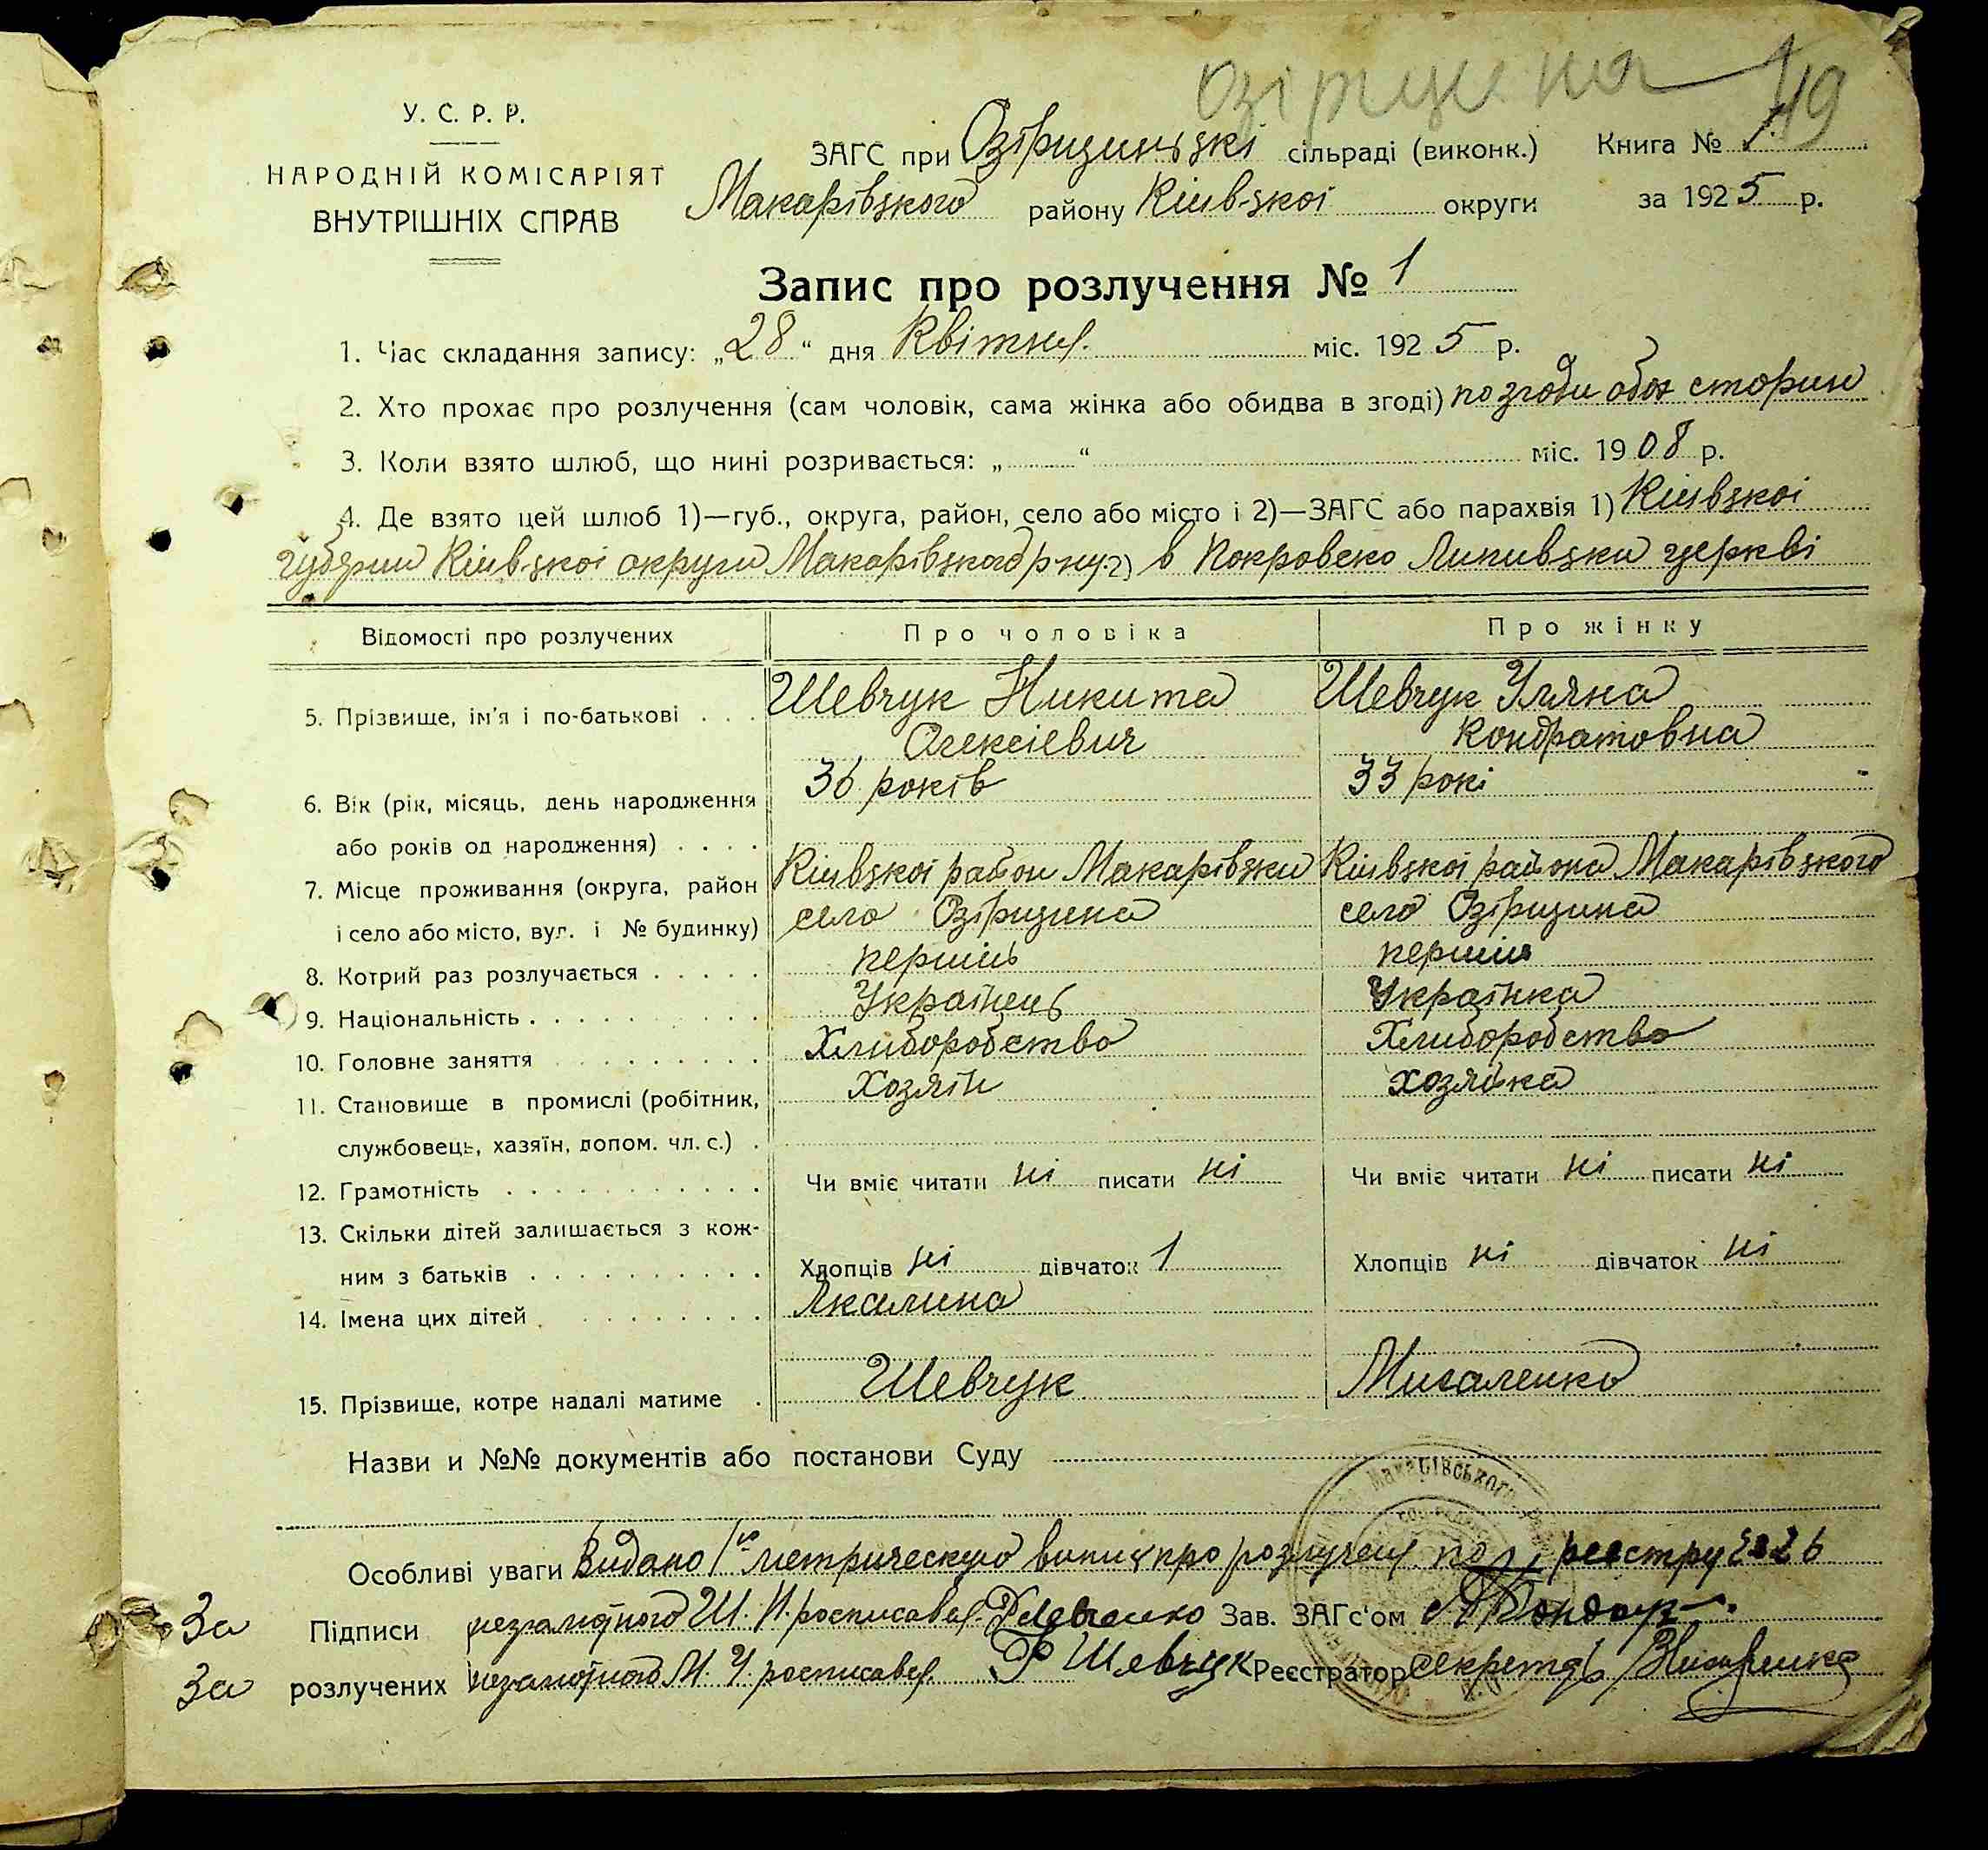 Озірщина 119
У. С. Р. Р.
НАРОДНІЙ КОМІСАРІЯТ
ВНУТРІШНІХ СПРАВ
ЗАГС при Озірщиньзкі сільраді (виконк.) Книга № 1
Макарівзкого району Київ-зкоі округи за 1925 р.
Запис про розлучення № 1
1. Час складання запису: „28“ дня Квітня міс. 1925 р.
2. Хто прохає про розлучення (сам чоловік, сама жінка або обидва в згоді) по згоди обох сторин
3. Коли взято шлюб, що нині розривається: „ “ міс. 1908 р.
4. Де взято цей шлюб 1)—губ., округа, район, село або місто і 2)—ЗАГС або парахвія 1) Київзкоі
губерни Київ-зкоі округи Макарівзкого р-ну 2) в Покровско Липивзки церкві
Відомості про розлучених Про чоловіка Про жінку
5. Прізвище, ім'я і по-батькові . . . Шевчук Никита Шевчук Уляна
Олексіевич Кондратовна
6. Вік (рік, місяць, день народження 36 років 33 рокі
або років од народження) . . . .
7. Місце проживання (округа, район Київзкоі район Макарівзки Київзкоі района Макарівзкого
і село або місто, вул. і № будинку) село Озірщина село Озірщина
8. Котрий раз розлучається . . . . . першій першій
9. Національність . . . . . . . . . Українець Українка
10. Головне заняття . . . . . . . . . Хлиборобство Хлиборобство
11. Становище в промислі (робітник, Хозяїн хозяйка
службовець, хазяїн, допом. чл. с.) .
12. Грамотність . . . . . . . . . . . Чи вміє читати ні писати ні Чи вміє читати ні писати ні
13. Скільки дітей залишається з кож-
ним з батьків . . . . . . . . . . Хлопців ні дівчаток 1 Хлопців ні дівчаток ні
14. Імена цих дітей . . . . . . . . . Якилина
15. Прізвище, котре надалі матиме . Шевчук Мисаленко
Назви и №№ документів або постанови Суду
Особливі уваги Видано метрическую випис про розлучення по реєстру
За Підписи незамтного Ш. Н. росписався Зав. ЗАГс'ом Бондар
За розлучених незамтного М. У. росписався Р Шевчук Реєстратор секретарь